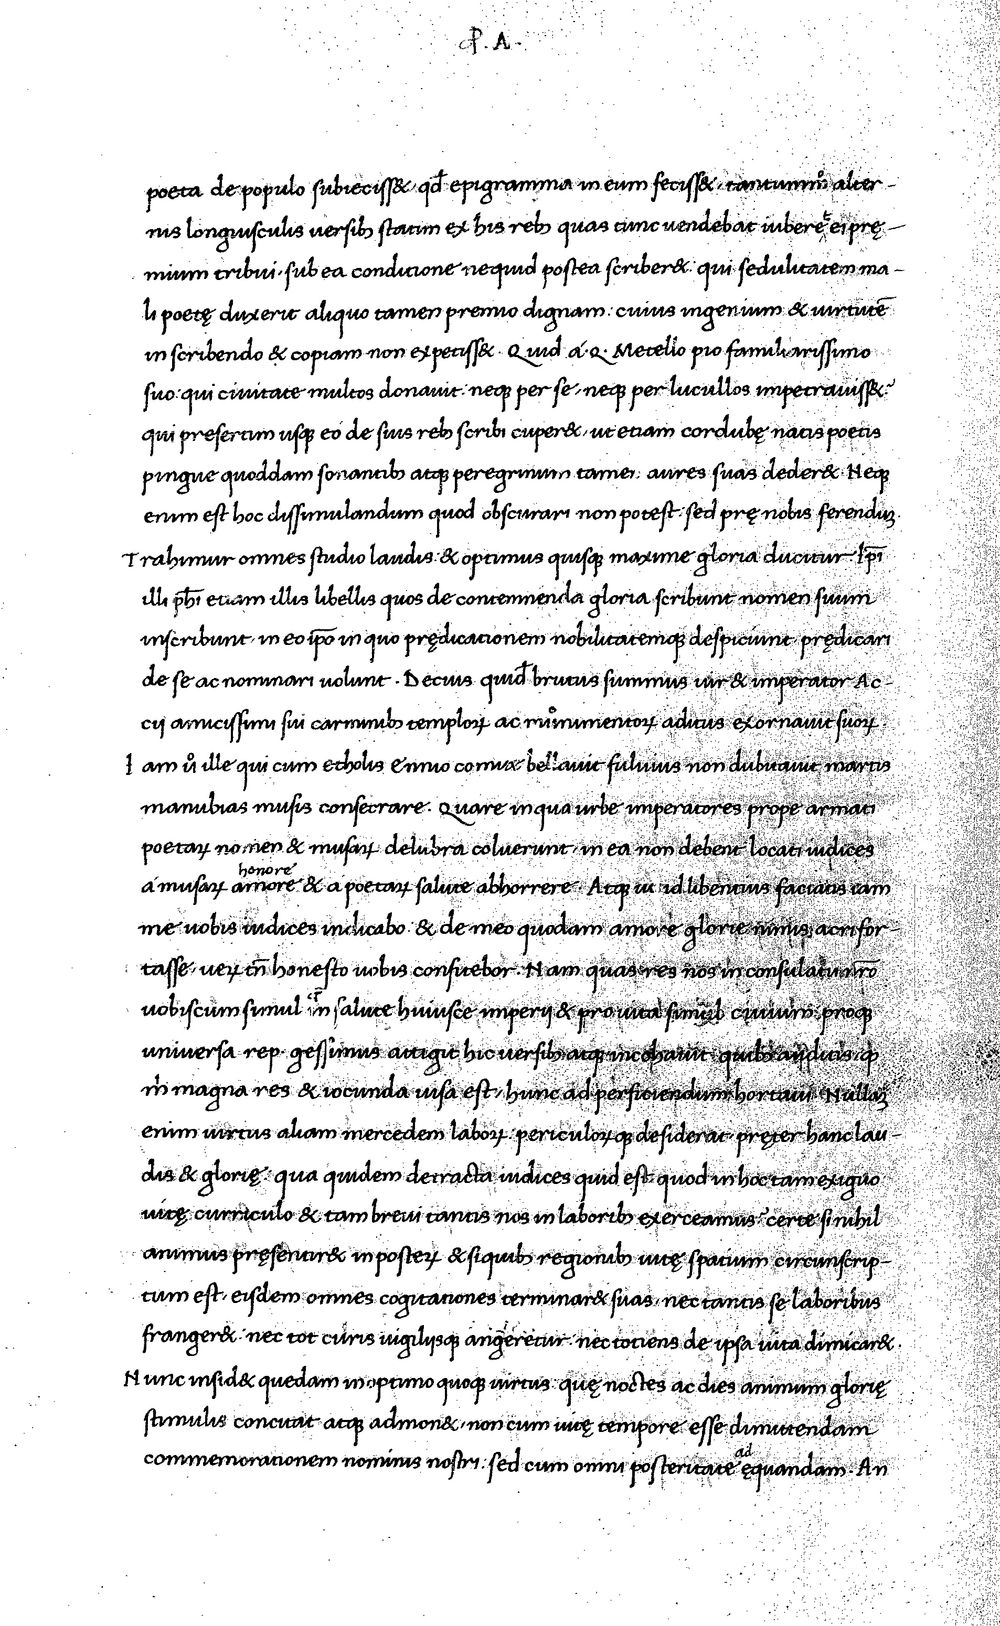 P. A.
poeta de populo subieciss& qđ epigramma in eum feciss& tantummͦ alter-
nis longiusculis uersibꝫ statim ex his rebꝫ quas tunc uendebat iubere ei prę-
mium tribui. sub ea condicione nequid postea scriber&. qui sedulitatem ma-
li poetę duxerit aliquo tamen premio dignam. cuius ingenium & uirtutē
in scribendo & copiam non expetiss&. Quid a. Q. Metello pio familiarissimo
suo. qui ciuitate multos donauit. neqꝫ per se. neqꝫ per lucullos impetrauiss&.
qui presertim usqꝫ eo de suis rebꝫ scribi cuper&. ut etiam cordubę natis poetis
pingue quoddam sonantibꝫ atqꝫ peregrinum tamen aures suas deder&. Neqꝫ
enim est hoc dissimulandum quod obscurari non potest. sed prę nobis ferenduꝫ.
Trahimur omnes studio laudis. & optimus quisqꝫ maxime gloria ducitur. Ip̄i
illi ph̄i etiam illis libellis quos de contemnenda gloria scribunt nomen suum
inscribunt. in eo ip̄o in quo prędicationem nobilitatemqꝫ despiciunt. prędicari
de se ac nominari uolunt. Decius quid̄ brutus summus uir & imperator Ac-
cij amicissimi sui carminibꝫ temploꝝ ac monumentoꝝ aditus exornauit suoꝝ.
Iam uͦ ille qui cum etholis Ennio comite bellauit fuluius non dubitauit martis
manubias musis consecrare. Quare in qua urbe imperatores prope armati
poetaꝝ nomen & musaꝝ delubra coluerunt. in ea non debent locati iudices
honore
a musaꝝ amore & a poetaꝝ salute abhorrere. Atqꝫ ut id libentius faciatis iam
me uobis iudices indicabo. & de meo quodam amore glorie nimis acri for-
tasse. ueꝝ tn̄ honesto uobis confitebor. Nam quas res nos in consulatu nr̄o
uobiscum simul in salute huiusce imperij & pro uita ciuium. proqꝫ
uniuersa rep. gessimus attigit hic uersibꝫ atqꝫ incohauit. quibꝫ auditis. qꝫ
m̍ magna res & iocunda uisa est. hunc ad perficiendum hortaui. Nullaꝫ
enim uirtus aliam mercedem laboꝝ. periculoꝝqꝫ desiderat. pręter hanc lau-
dis & glorię. qua quidem detracta iudices quid est. quod in hoc tam exiguo
uitę curriculo & tam breui tantis nos in laboribꝫ exerceamus. certe si nihil
animus pręsentir& in posteꝝ & si quibꝫ regionibꝫ uitę spatium circunscrip-
tum est. eisdem omnes cogitationes terminar& suas. nec tantis se laboribus
franger&. nec tot curis uigilijsqꝫ angeretur. nec totiens de ipsa uita dimicar&.
Nunc insid& quedam in optimo quoqꝫ uirtus. quę noctes ac dies animum glorię
stimulis concitat atqꝫ admon&. non cum uitę tempore esse dimittendam
ad
commemorationem nominis nostri. sed cum omni posteritate ęquandam. An